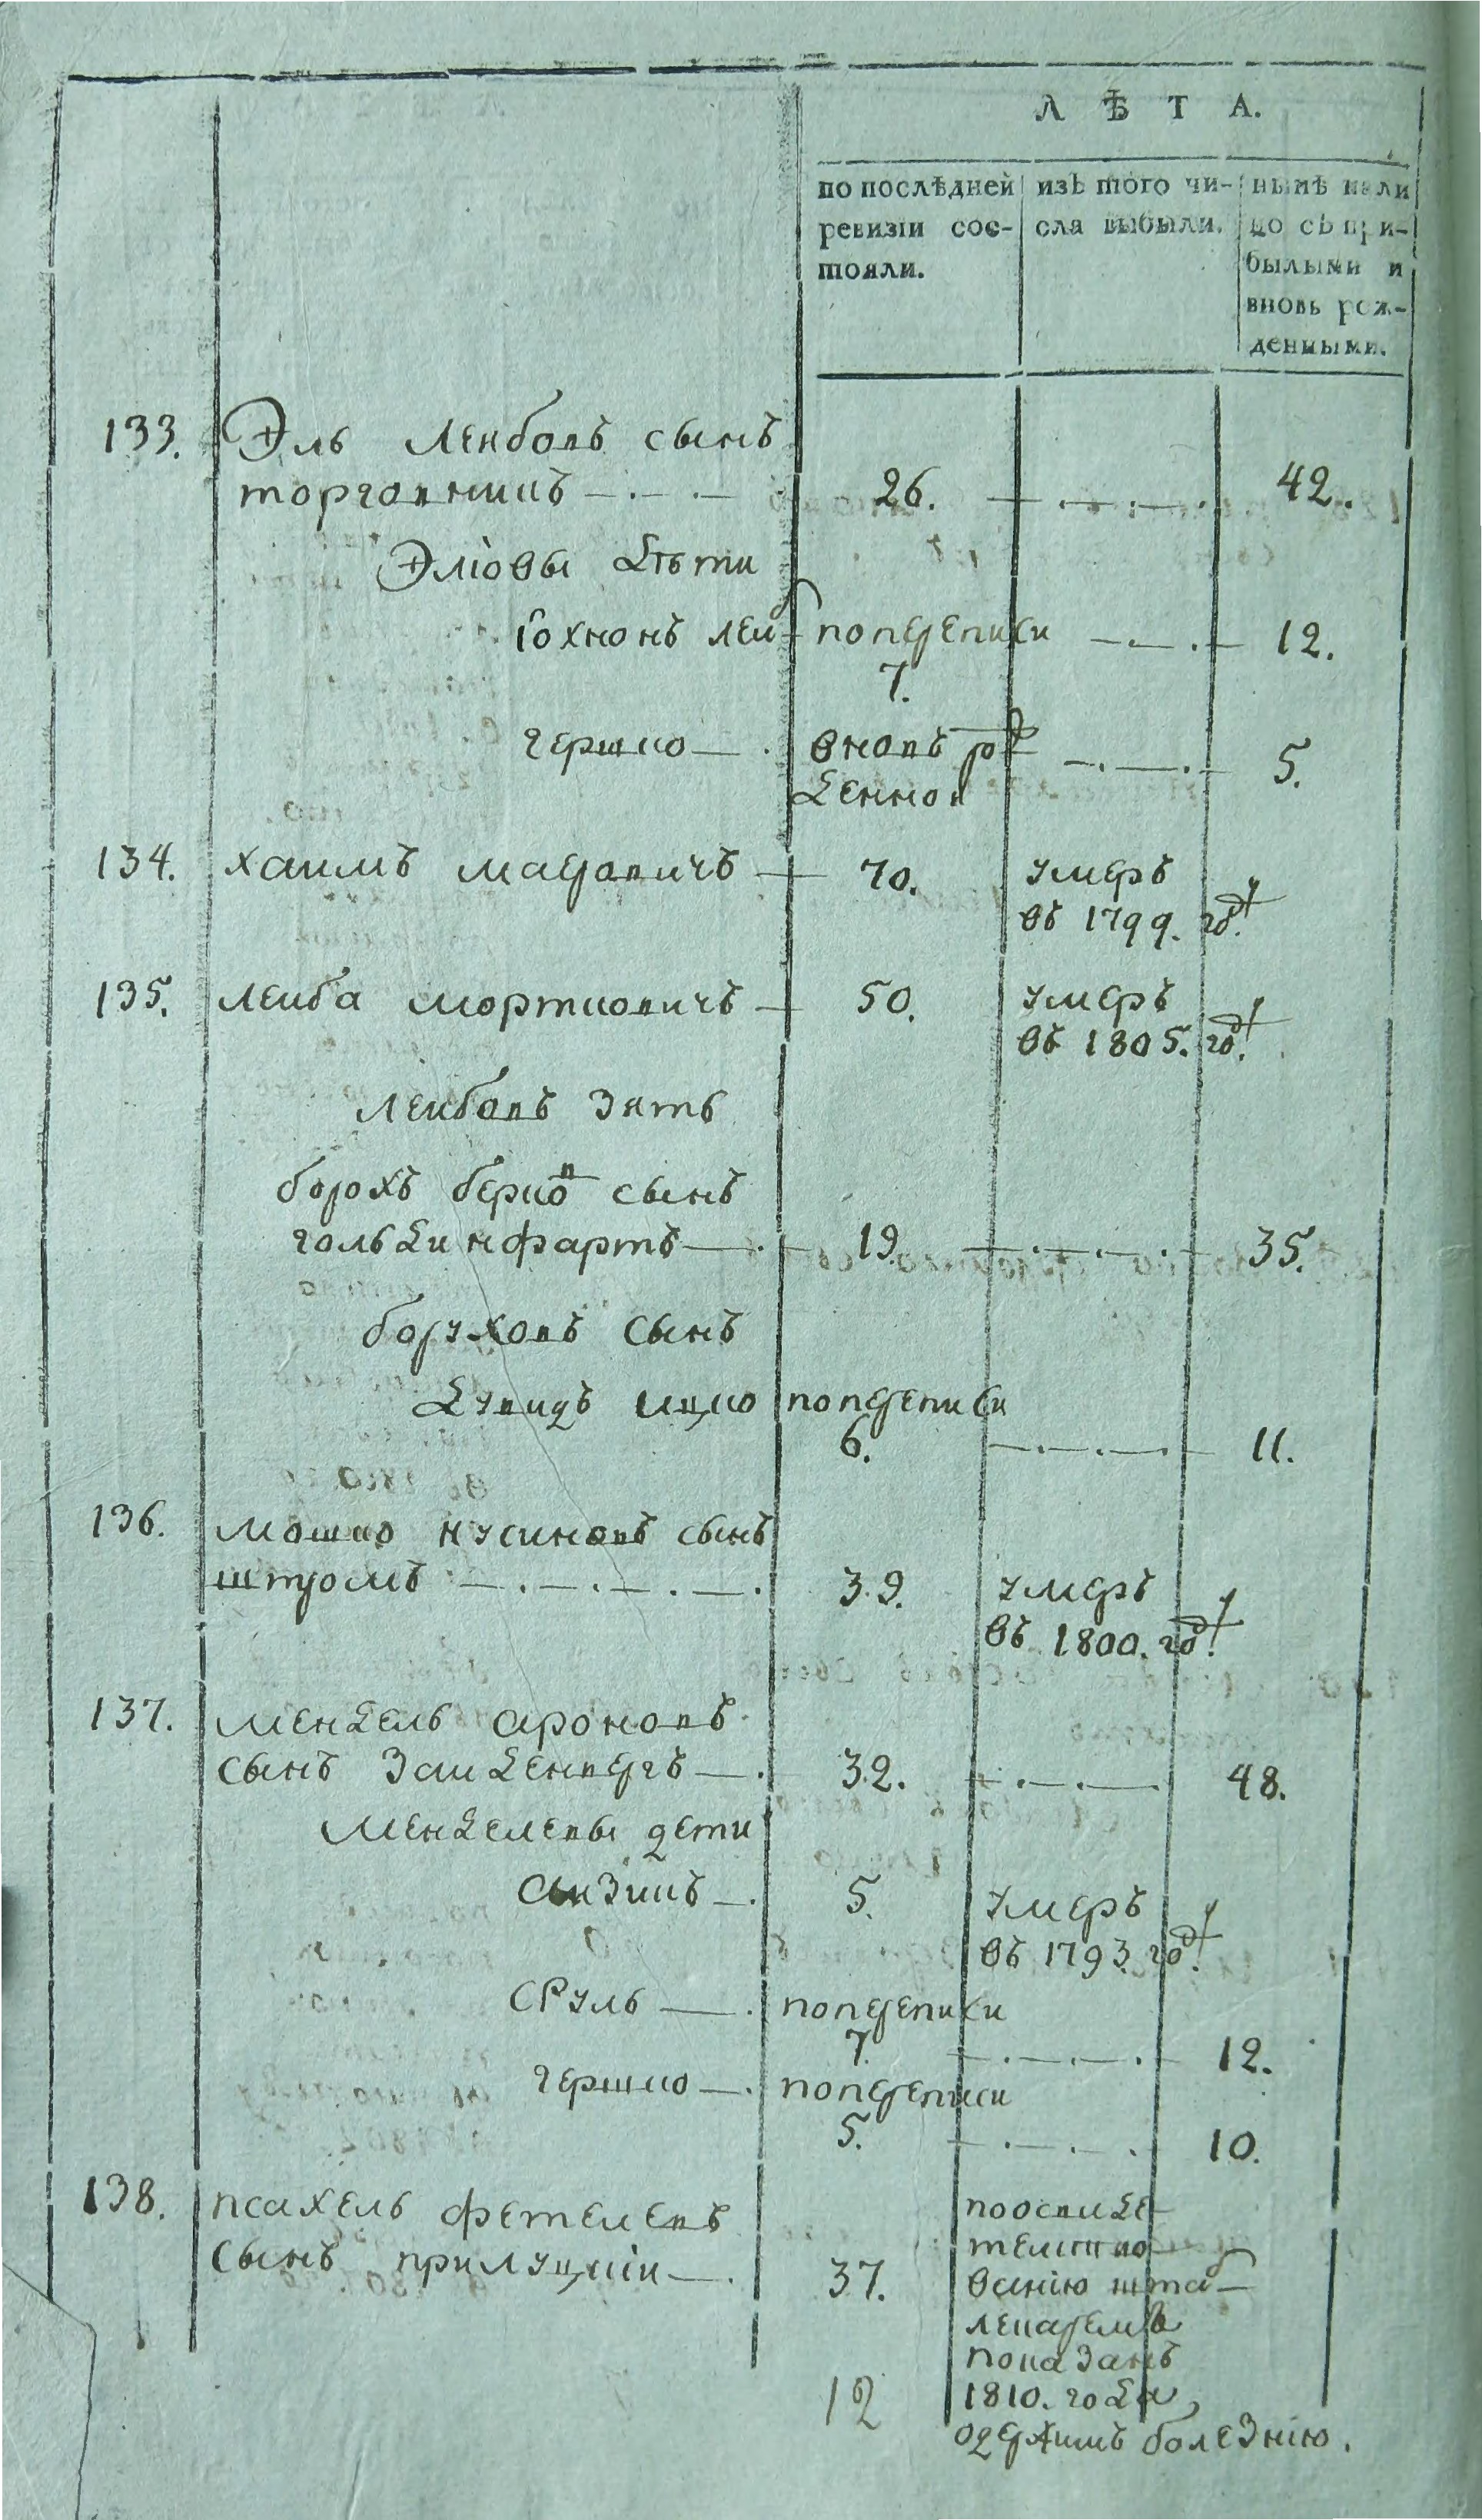 Л Ѣ Т А.
по послѣдней ревизіи состояли.
изъ того числа выбыли.
нынѣ нали цо съ прибылыми и вновь рожденными.
133. Эль лейбовъ сынъ
торговникъ 26. 42.
Эліовы дѣти
Іохнонъ лейб попереписи 12.
7.
гершко вновь рож 5.
денной
134. хаимъ маеровичъ 70. умеръ
въ 1799. год.
135. лейба мортковичъ 50. умеръ
въ 1805. год.
лейбовъ зять
борохъ берков сынъ
гольдинфартъ 19. 35.
боруховъ сынъ
дувидъ ицко попереписи
6. 11.
136. мошко нусиновъ сынъ
штромъ 39. умеръ
въ 1800. год.
137. мендель ароновъ
сынъ зайденвергъ 32. 48.
менделевы дети
айзикъ 5. умеръ
въ 1793. год.
сруль попереписи
7. 12.
гершко попереписи
5. 10.
138. псахель фетелевъ
сынъ прилуцкій 37.
поосвиде
тельство
ванію штаб
лекаремъ
показанъ
1810. года
одержимъ болезнію.
12